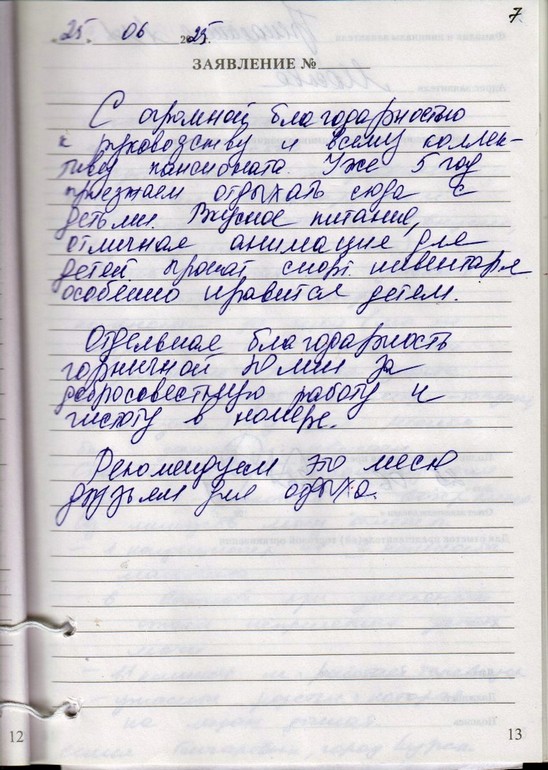 7
25. 06 2025
ЗАЯВЛЕНИЕ №
С огромной благодарностью
к руководству и всему коллек-
тиву пансионата. Уже 5 год
приезжаем отдыхать сюда с
детьми. Вкусное питание,
отличная анимация для
детей прокат спорт. инвентаря
особенно нравится детям.
Отдельная благодарность
горничной Юлии за
добросовестную работу и
чистоту в номере.
Рекомендуем это место
друзьям для отдыха.
12
13